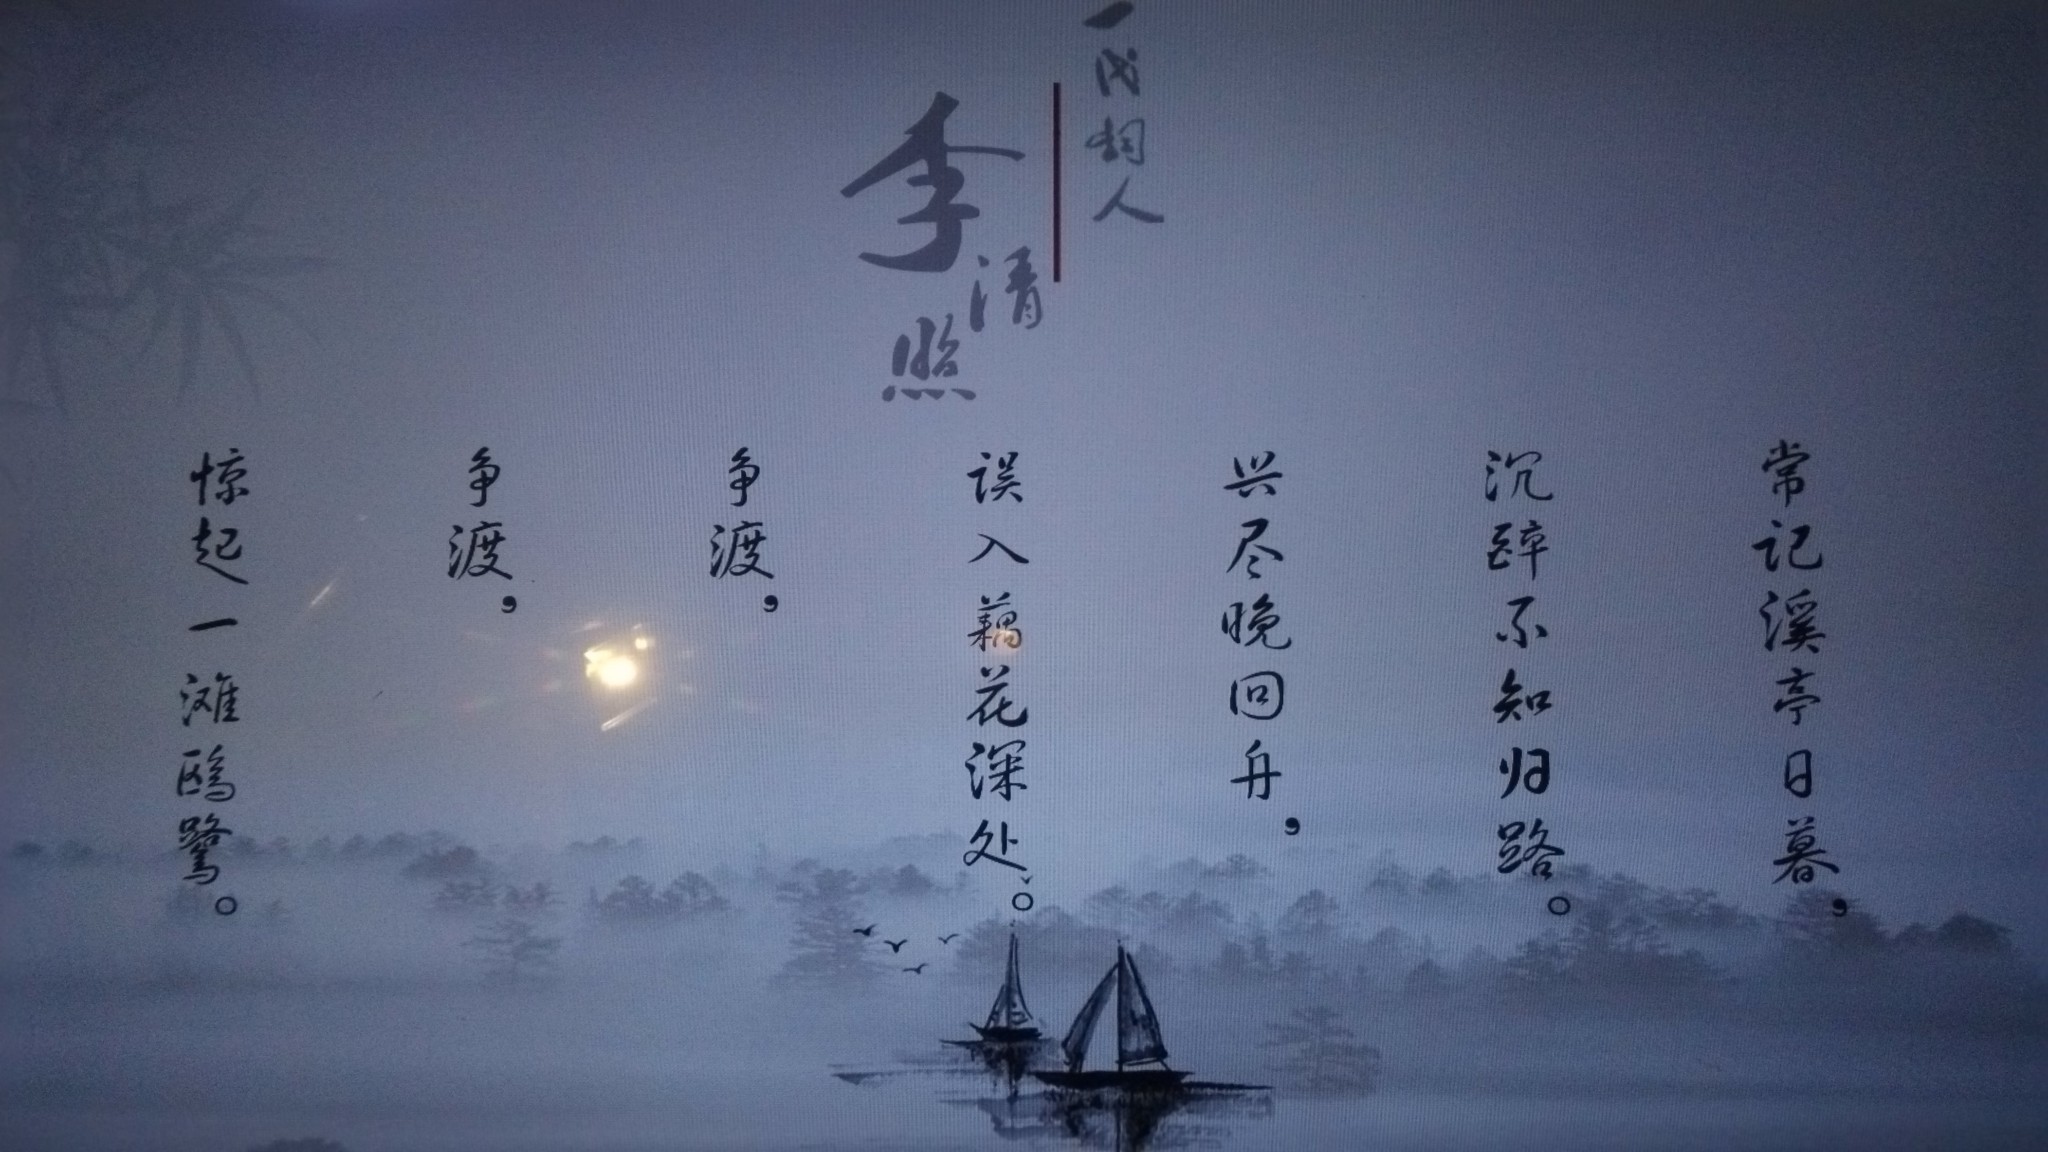 一代词人
李清照
常记溪亭日暮，
沉醉不知归路。
兴尽晚回舟，
误入藕花深处。
争渡，
争渡，
惊起一滩鸥鹭。